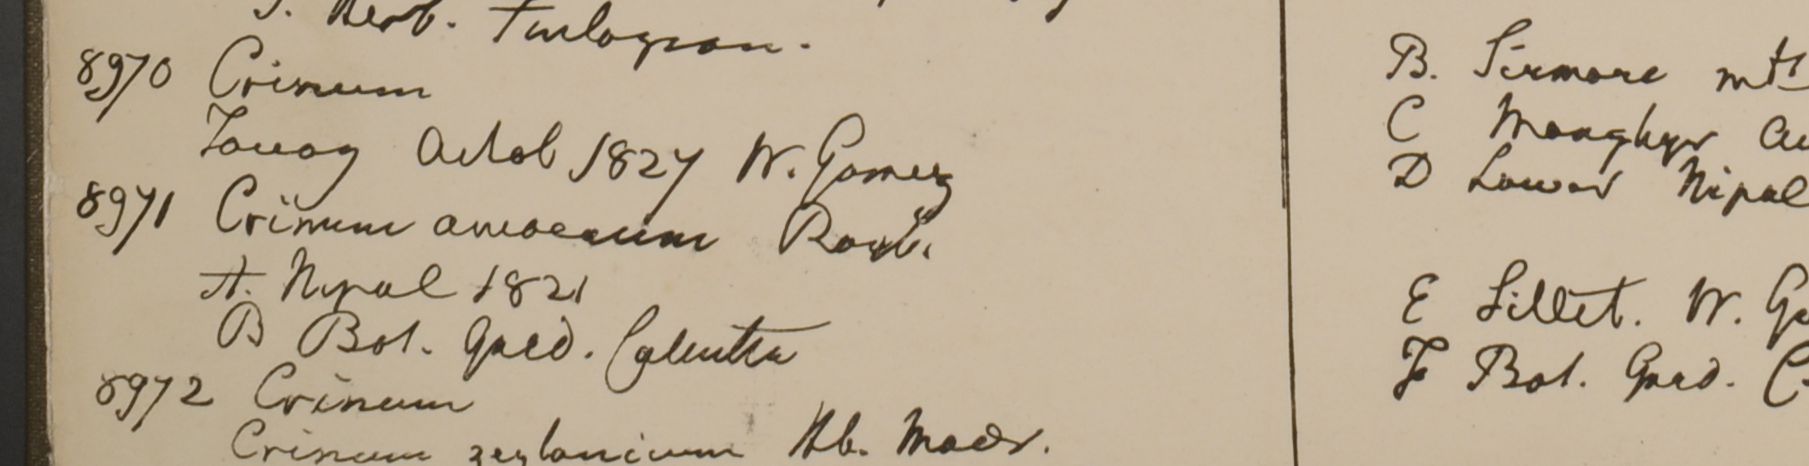 J. Herb. Finlayson.
8970 Crinum
Tavoy Octob 1827 W. Gomez
8971 Crinum amoenum Roxb.
A. Nipal 1821
B Bot. Gard. Calcutta
8972 Crinum
Crinum zeylanicum Hb. Madr.
B. Sirmore mts
C Monghyr
D Lower Nipal
E Sillet. W.
F Bot. Gard.